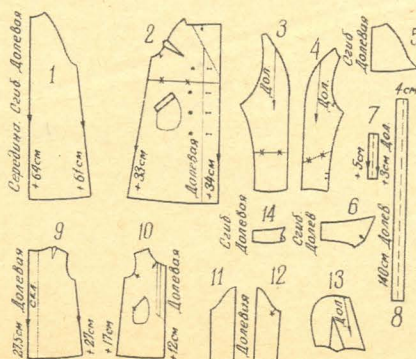 Середина. Сгиб Долевая
1
+64см
+61см
2
+33см
Долевая
+34см
3
Дол.
4
Дол.
Сгиб
Долевая
7
+5см
+3см Дол.
4см
140см Долев
8
14
Сгиб
Долевая
6
Сгиб
Долев
9
27,5см Долевая
скл.
+27см
10
+17см
Долевая
+12см
11
Долевая
12
13
Дол.